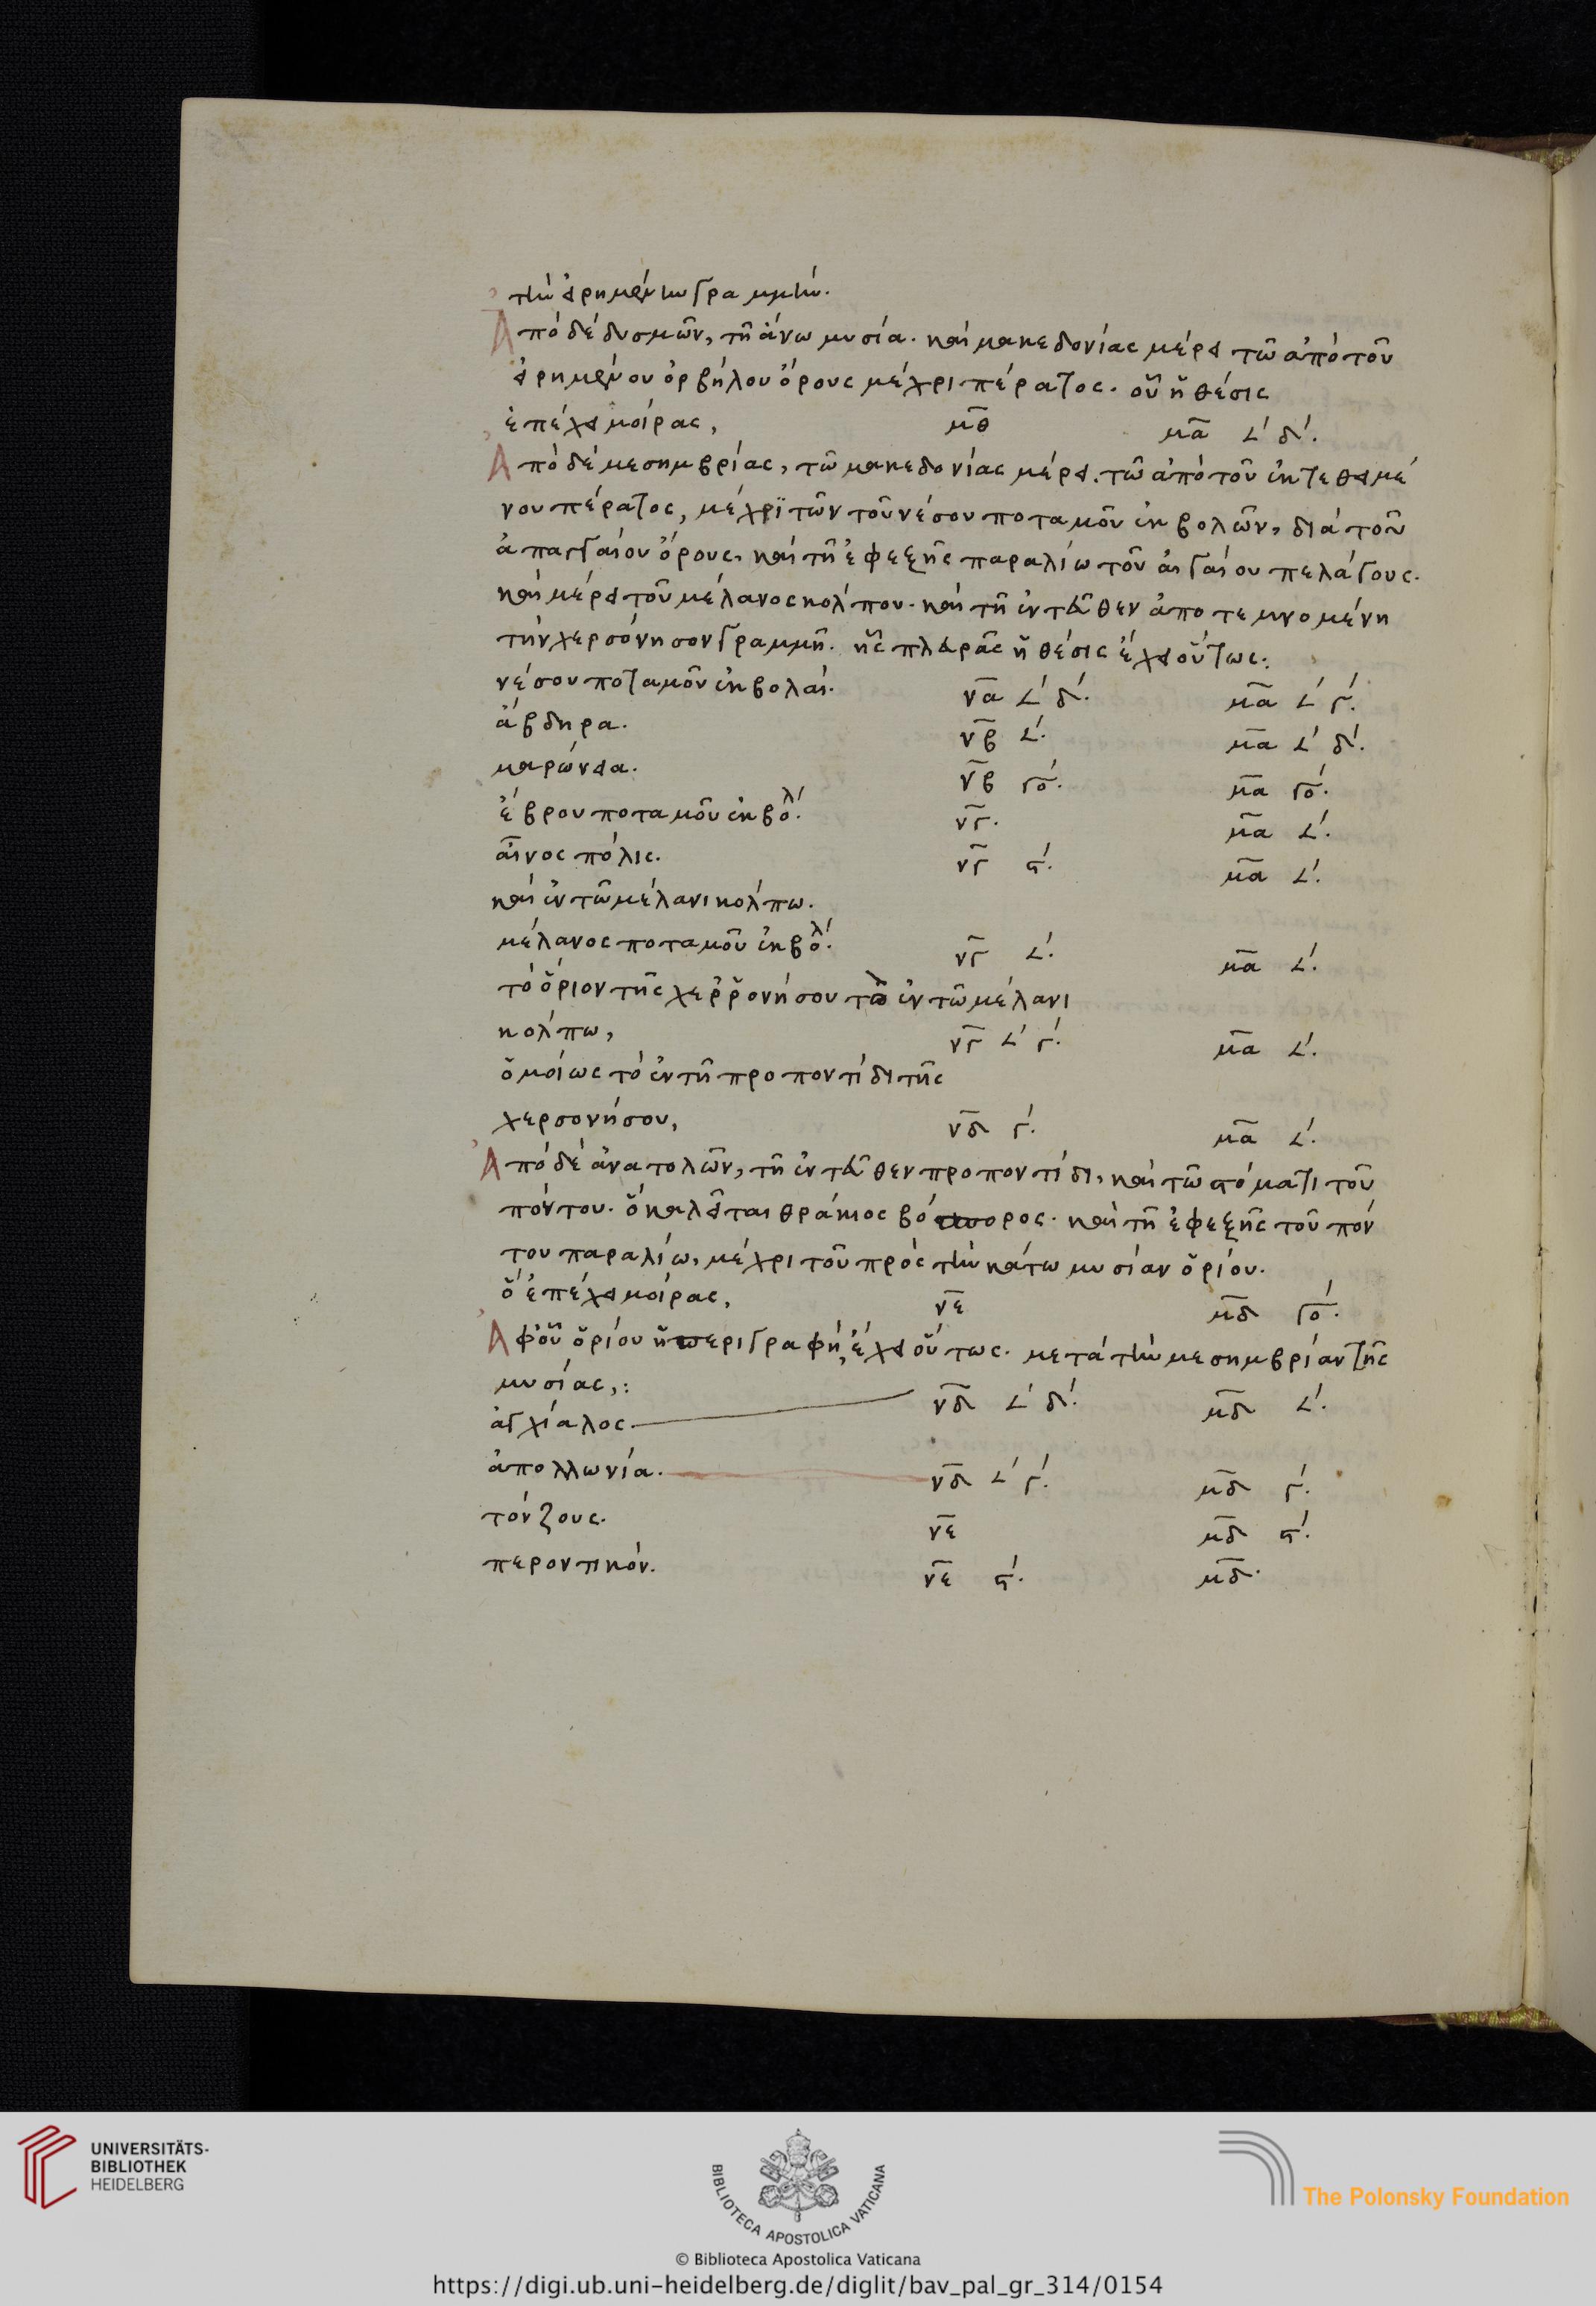 τὴν εἰρημένην γραμμήν.
Ἀπὸ δὲ δυσμῶν, τῆ ἄνω μυσία. καὶ μακεδονίας μέρει τῶ ἀπὸ τοῦ
εἰρημένου ὀρβήλου ὄρους μέχρι πέρατος. οὗ ἡ θέσις
ἐπέχει μοίρας, μ̅θ̅ μ̅α̅ ∠ʹ δʹ.
Ἀπὸ δὲ μεσημβρίας, τῶ μακεδονίας μέρει. τῶ ἀπὸ τοῦ ἐκτεθειμέ
νου πέρατος, μέχρϊ τῶν τοῦ νέσου ποταμοῦ ἐκβολῶν, διὰ τοῦ
ἀπαγγαίου ὄρους, καὶ τῆ ἐφεξῆς παραλίω τοῦ αἰγαίου πελάγους.
καὶ μέρει τοῦ μέλανος κόλπου. καὶ τῆ ἐντεῦθεν ἀποτεμνομένη
τὴν χερσόνησον γραμμῆ. ἧς πλευρᾶς ἡ θέσις ἔχει οὕτως:
νέσου ποταμοῦ ἐκβολαί. ν̅α̅ ∠ʹ δʹ. μ̅α̅ ∠ʹ γʹ.
ἄβδηρα. ν̅β̅ ∠ʹ. μ̅α̅ ∠ʹ δʹ.
μαρώνεια. ν̅β̅ γοʹ. μ̅α̅ γοʹ.
ἕβρου ποταμοῦ ἐκβολʹ. ν̅γ̅. μ̅α̅ ∠ʹ.
αἶνος πόλις. ν̅γ̅ ϛʹ. μ̅α̅ ∠ʹ.
καὶ ἐν τῶ μέλανι κόλπω.
μέλανος ποταμοῦ ἐκβολʹ. ν̅γ̅ ∠ʹ. μ̅α̅ ∠ʹ.
τὸ ὅριον τῆς χερῤονήσου τὸ ἐν τῶ μέλανι
κόλπω, ν̅γ̅ ∠ʹ γʹ. μ̅α̅ ∠ʹ.
ὁμοίως τὸ ἐν τῆ προποντίδι τῆς
χερσονήσου, ν̅δ̅ γʹ. μ̅α̅ ∠ʹ.
Ἀπὸ δὲ ἀνατολῶν, τῆ ἐντεῦθεν προποντίδι, καὶ τῶ στόματι τοῦ
πόντου. ὃ καλεῖται θράκιος βόσπορος. καὶ τῆ ἐφεξῆς τοῦ πόν
του παραλίω, μέχρι τοῦ πρὸς τὴν κάτω μυσίαν ὁρίου.
ὃ ἐπέχει μοίρας, ν̅ε̅ μ̅δ̅ γοʹ.
Ἀφ' οὗ ὁρίου ἡ περιγραφὴ, ἔχει οὕτως. μετὰ τὴν μεσημβρίαν τῆς
μυσίας,:
ἀγχίαλος. ν̅δ̅ ∠ʹ δʹ. μ̅δ̅ ∠ʹ.
ἀπολλωνία. ν̅δ̅ ∠ʹ γʹ. μ̅δ̅ γʹ.
τόνζους. ν̅ε̅ μ̅δ̅ ϛʹ.
περοντικόν. ν̅ε̅ ϛʹ. μ̅δ̅.
UNIVERSITÄTS-
BIBLIOTHEK
HEIDELBERG
BIBLIOTECA APOSTOLICA VATICANA
The Polonsky Foundation
© Biblioteca Apostolica Vaticana
https://digi.ub.uni-heidelberg.de/diglit/bav_pal_gr_314/0154